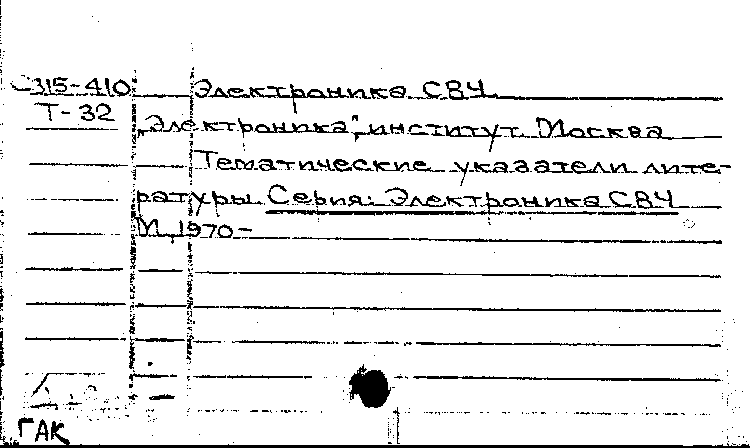 С315-410 Электроника СВЧ
Т-32
„Электроника", институт. Москва
Тематические указатели лите-
ратуры. Серия: Электроника СВЧ
М., 1970-
ГАК